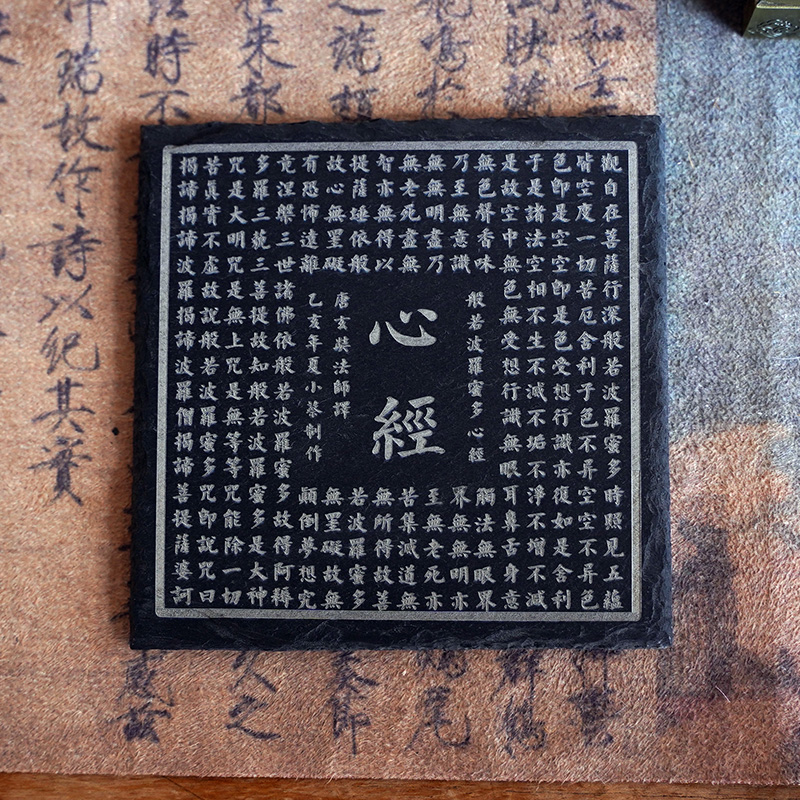 觀自在菩薩行深般若波羅蜜多時照見五蘊
皆空度一切苦厄舍利子色不异空空不异色
色即是空空即是色受想行識亦復如是舍利
子是諸法空相不生不滅不垢不淨不增不減
是故空中無色無受想行識無眼耳鼻舌身意
無色聲香味
觸法無眼界
乃至無意識
界無無明亦
無無明盡乃
至無老死亦
無老死盡無
苦集滅道無
智亦無得以
無所得故菩
提薩埵依般
若波羅蜜多
故心無罣礙
無罣礙故無
有恐怖遠離
顛倒夢想究
竟涅槃三世諸佛依般若波羅蜜多故得阿耨
多羅三藐三菩提故知般若波羅蜜多是大神
咒是大明咒是無上咒是無等等咒能除一切
苦真實不虛故說般若波羅蜜多咒即說咒曰
揭諦揭諦波羅揭諦波羅僧揭諦菩提薩婆訶
般若波羅蜜多心經
心經
唐玄奘法師譯
乙亥年夏小蔡制作
來都
時不
瑞故作詩以紀其實